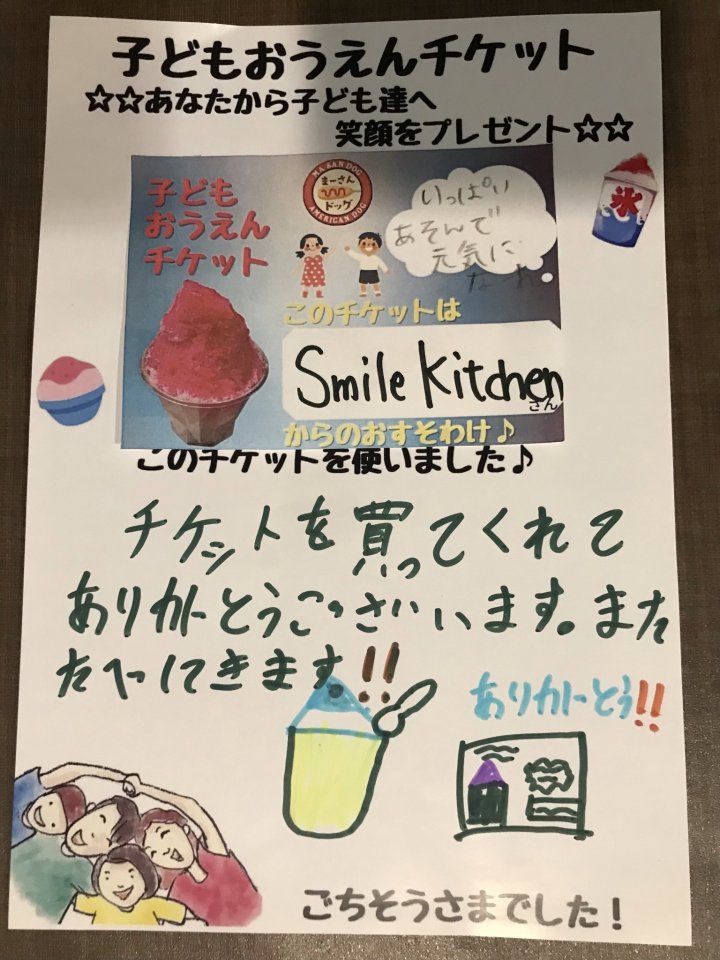 子どもおうえんチケット
☆☆あなたから子ども達へ
笑顔をプレゼント☆☆
子ども
おうえん
チケット
MA SAN DOG
まーさん
ドッグ
AMERICAN DOG
いっぱい
あそんで
元気に
なれ
氷
このチケットは
Smile Kitchen
さん
からのおすそわけ♪
このチケットを使いました♪
チケットを買ってくれて
ありがとうございいます。また
たべにきます!!
ありがとう!!
ごちそうさまでした!